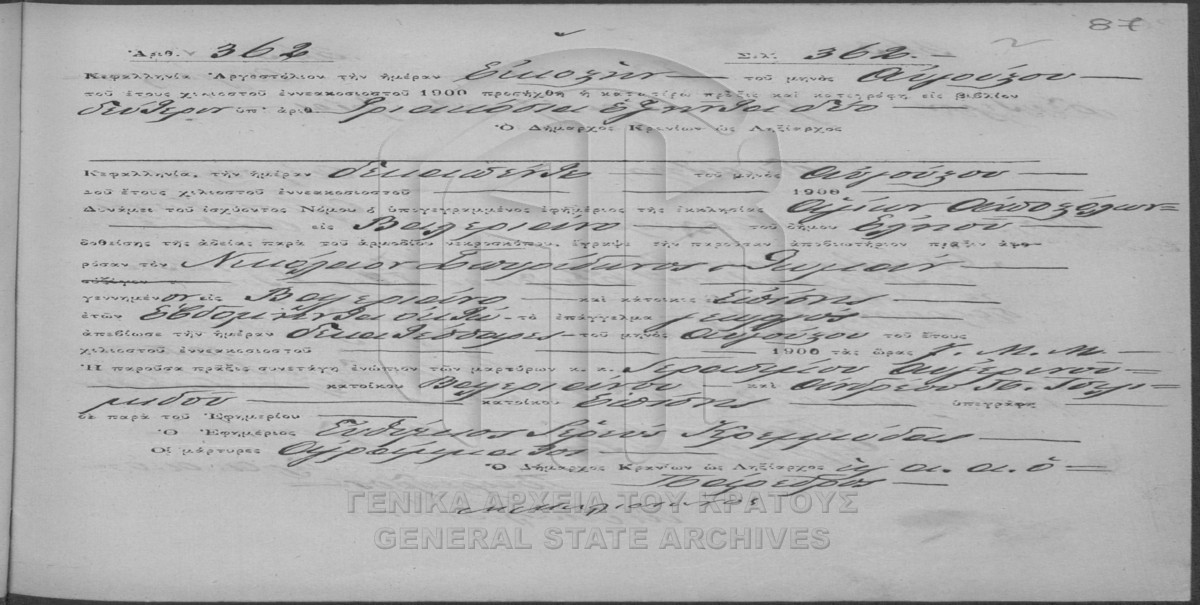 87
Ἀριθ. 362 Σελ. 362.
Κεφαλληνία Ἀργοστόλιον τὴν ἡμέραν Εἰκοστὴν τοῦ μηνὸς Αὐγούστου
τοῦ ἔτους χιλιοστοῦ ἐννεακοσιοστοῦ 1900 προσήχθη ἡ κατωτέρω πρᾶξις καὶ κατεγράφη εἰς βιβλίον
δεύτερον ὑπ' ἀριθ. Τριακόσια ἑξήντα δύο
Ὁ Δήμαρχος Κρανίων ὡς Ληξίαρχος
Κεφαλληνία, τὴν ἡμέραν δεκαπέντε τοῦ μηνὸς Αὐγούστου
τοῦ ἔτους χιλιοστοῦ ἐννεακοσιοστοῦ 1900
Δυνάμει τοῦ ἰσχύοντος Νόμου ὁ ὑπογεγραμμένος ἐφημέριος τῆς ἐκκλησίας Ἁγίων Ἀποστόλων
εἰς Βαλεριάνο τοῦ δήμου
δοθείσης τῆς ἀδείας παρὰ τοῦ ἁρμοδίου νεκροσκόπου, ἔγραψε τὴν παροῦσαν ἀποβιωτήριον πρᾶξιν ἀφο-
ρῶσαν τὸν Νικόλαον Σπυρίδωνος
σύζυγον
γεννημένον εἰς Βαλεριάνο καὶ κάτοικον ἐπίσης
ἐτῶν Ἑβδομήντα ὀκτὼ τὸ ἐπάγγελμα γεωργὸς
ἀπεβίωσε τὴν ἡμέραν δεκατέσσαρες τοῦ μηνὸς Αὐγούστου τοῦ ἔτους
χιλιοστοῦ ἐννεακοσιοστοῦ 1900 τὰς ὥρας 7. Μ. Μ.
Ἡ παροῦσα πρᾶξις συνετάγη ἐνώπιον τῶν μαρτύρων κ. κ. Γερασίμου Αὐγερινοῦ
κατοίκου Βαλεριάνου καὶ Ἀνδρέου
κατοίκου ἐπίσης ὑπεγράφη
δὲ παρὰ τοῦ Ἐφημερίου
Ὁ Ἐφημέριος Εὐθύμιος Ἱερεὺς
Οἱ μάρτυρες Ἀγράμματοι
Ὁ Δήμαρχος Κρανίων ὡς Ληξίαρχος κ. α. α. ὁ
Πάρεδρος
ΓΕΝΙΚΑ ΑΡΧΕΙΑ ΤΟΥ ΚΡΑΤΟΥΣ
GENERAL STATE ARCHIVES